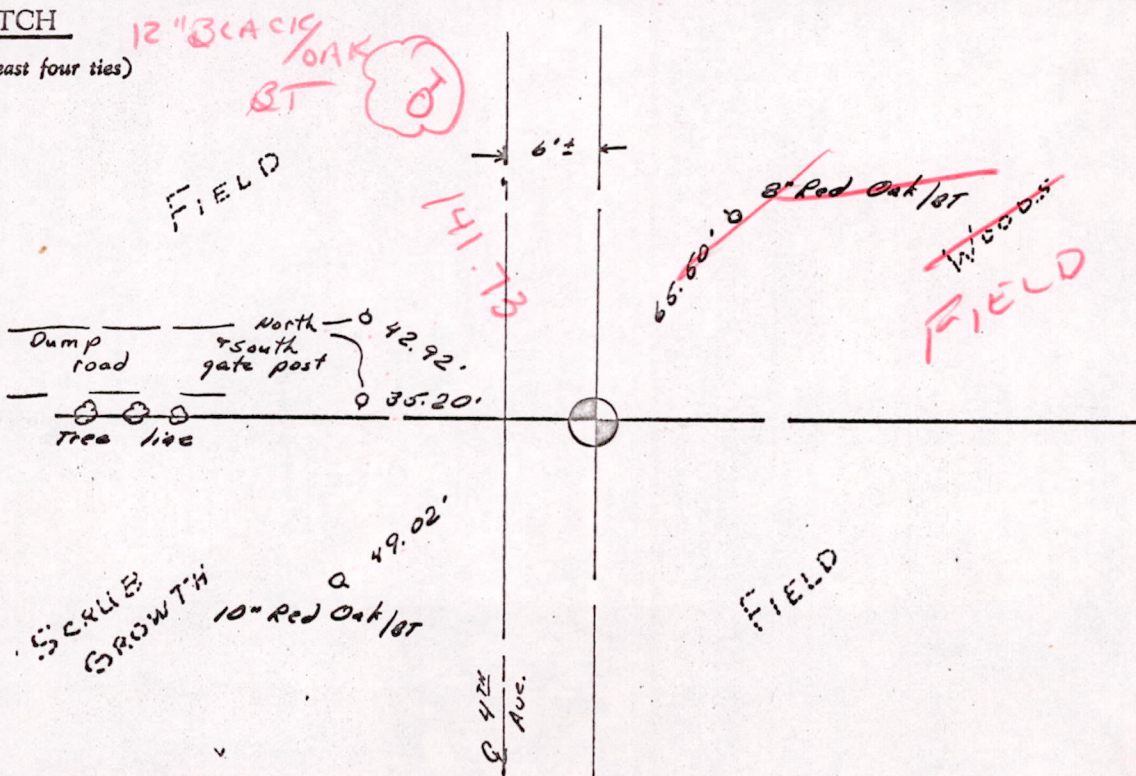 TCH
east four ties)
12" BLACK/OAK
BT
FIELD
6'±
141.73
8" Red Oak/BT
66.60'
Woods
FIELD
North
& South
gate post
42.92'
Dump
road
35.20'
Tree line
49.02'
10" Red Oak/BT
SCRUB
GROWTH
FIELD
℄ 4TH
Ave.